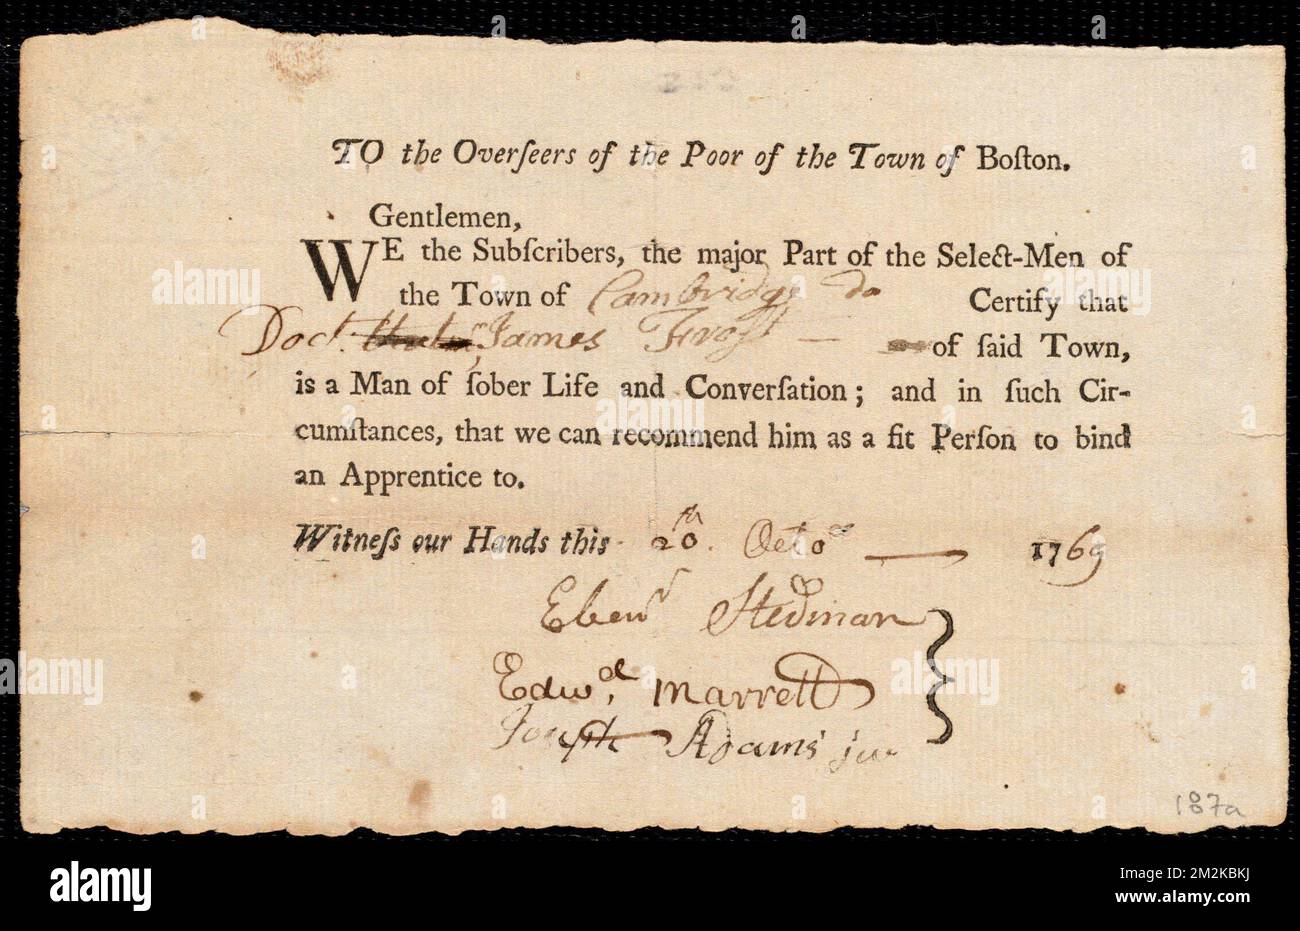 TO the Overſeers of the Poor of the Town of Boſton.
Gentlemen,
WE the Subſcribers, the major Part of the Select-Men of
the Town of Cambridge do Certify that
Doct. James Froſt — of ſaid Town,
is a Man of ſober Life and Converſation; and in ſuch Cir-
cumſtances, that we can recommend him as a fit Perſon to bind
an Apprentice to.
Witneſs our Hands this 20th. Octor — 1769
Ebenr Stedman
Edwd, Marrett
Joseph Adams jur
187a
alamy
alamy
Image ID: 2M2KBKJ
www.alamy.com